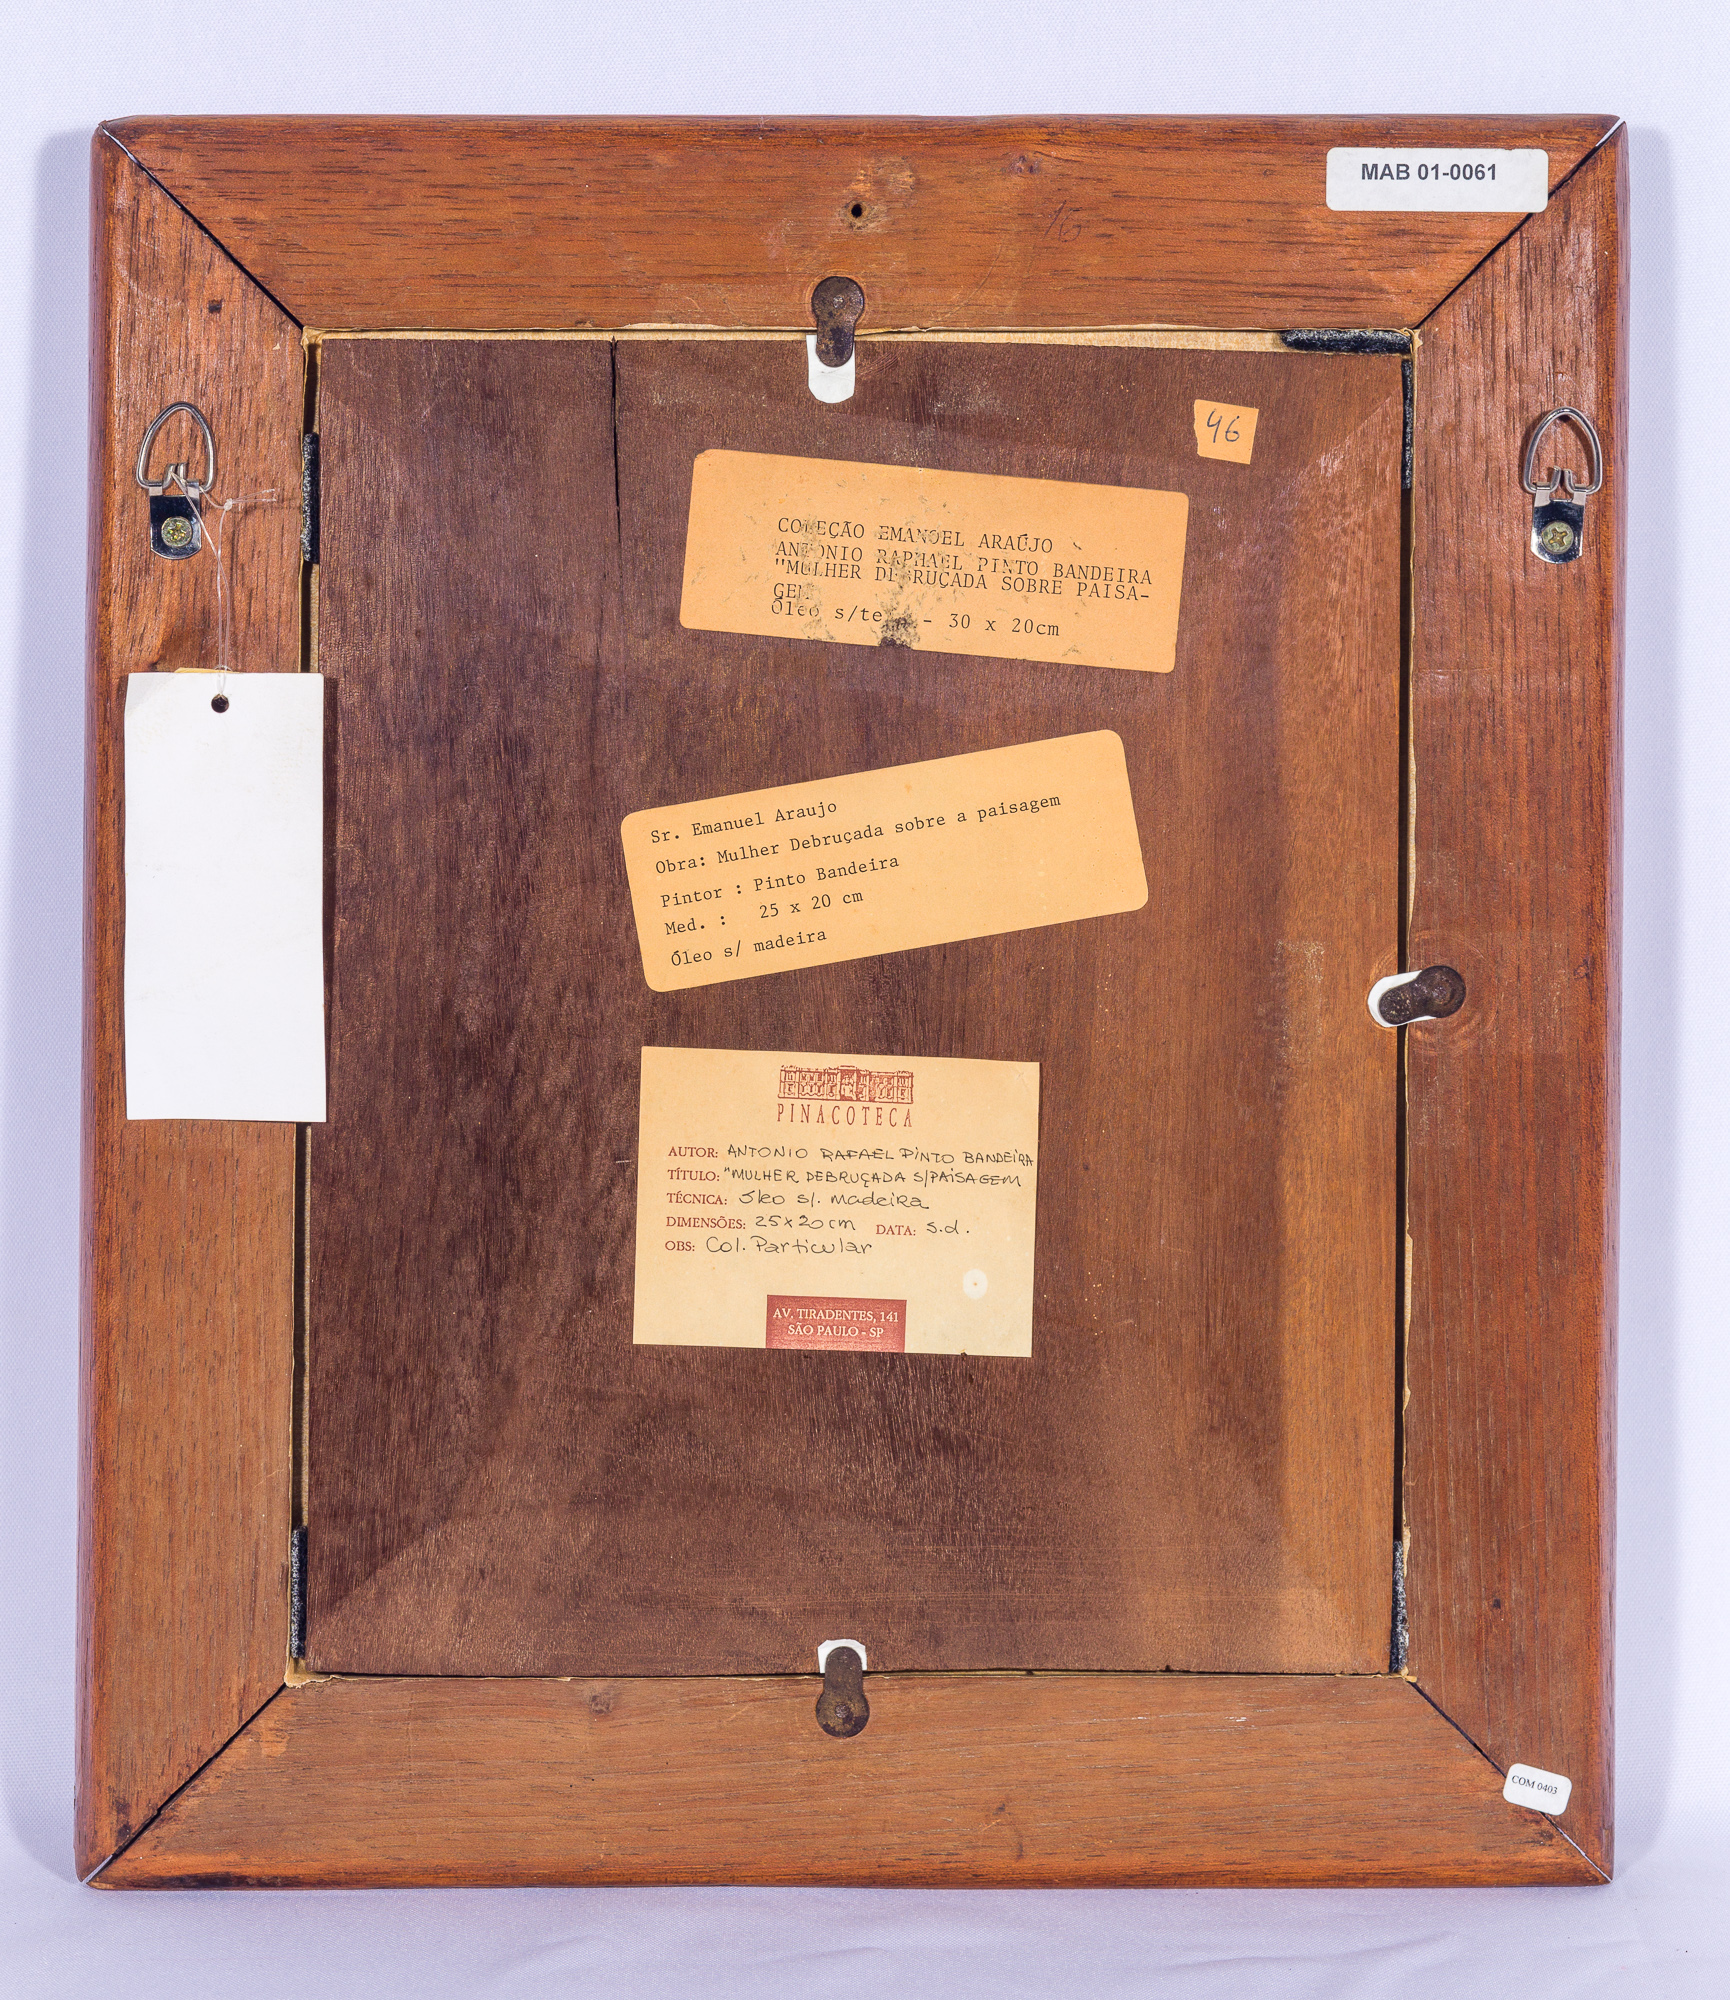 MAB 01-0061
46
COLEÇÃO EMANOEL ARAÚJO
ANTONIO RAPHAEL PINTO BANDEIRA
"MULHER DEBRUÇADA SOBRE PAISA-
GEM
Óleo s/ - 30 x 20cm
Sr. Emanuel Araujo
Obra: Mulher Debruçada sobre a paisagem
Pintor : Pinto Bandeira
Med. : 25 x 20 cm
Óleo s/ madeira
PINACOTECA
AUTOR: ANTONIO RAFAEL PINTO BANDEIRA
TÍTULO: "MULHER DEBRUÇADA S/PAISAGEM
TÉCNICA: óleo s/. madeira
DIMENSÕES: 25x20cm DATA: s.d.
OBS: Col. Particular
AV. TIRADENTES, 141
SÃO PAULO - SP
COM 0403